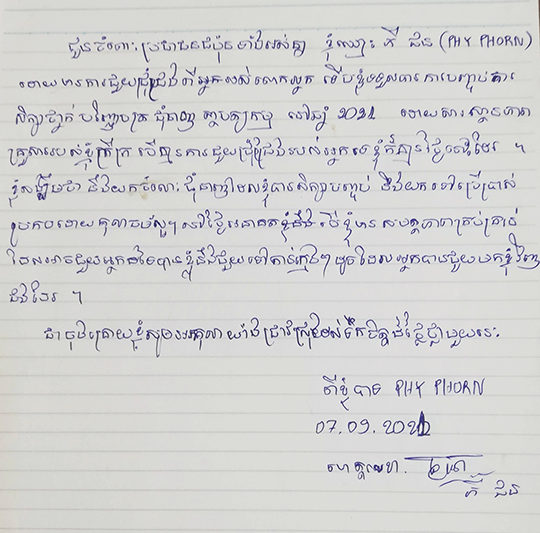 ជូនចំពោះ ប្រជាជនជប៉ុនទាំងអស់គ្នា ខ្ញុំឈ្មោះ ភី ផន (PHY PHORN)
ដោយមានការជួយជ្រោមជ្រែងពីអ្នកអស់លោកអ្នក ទើបខ្ញុំទទួលបានការបញ្ចប់ការ
សិក្សាថ្នាក់ បរិញ្ញាបត្រ ជំនាញ ក្នុងឆ្នាំ 2021 ដោយសារ ស្ថានភាព
គ្រួសាររបស់ខ្ញុំក្រីក្រ បើគ្មានការជួយជ្រោមជ្រែងរបស់អ្នកទេ ខ្ញុំក៏គ្មានថ្ងៃនេះដែរ ។
ខ្ញុំសង្ឃឹមថា នឹងយកចំណេះ ជំនាញដែលខ្ញុំបានសិក្សាបញ្ចប់ នឹងយកទៅប្រើប្រាស់
ប្រកបដោយគុណធម៌ល្អៗ នៅថ្ងៃអនាគតខ្ញុំនឹង បើខ្ញុំមាន សមត្ថភាពគ្រប់គ្រាន់
ដែលអាចជួយអ្នកដទៃបាន ខ្ញុំនឹងជួយទៅដល់ក្មេងៗ ដូចដែលអ្នកបានជួយមកខ្ញុំវិញ
ផងដែរ ។
ជាចុងក្រោយខ្ញុំសូមអរគុណ យ៉ាងជ្រាលជ្រៅចំពោះទឹកចិត្តដ៏ថ្លៃថ្លាមួយនេះ
ពីខ្ញុំបាទ PHY PHORN
07.09.2021
ហត្ថលេខា.
ភី ផន